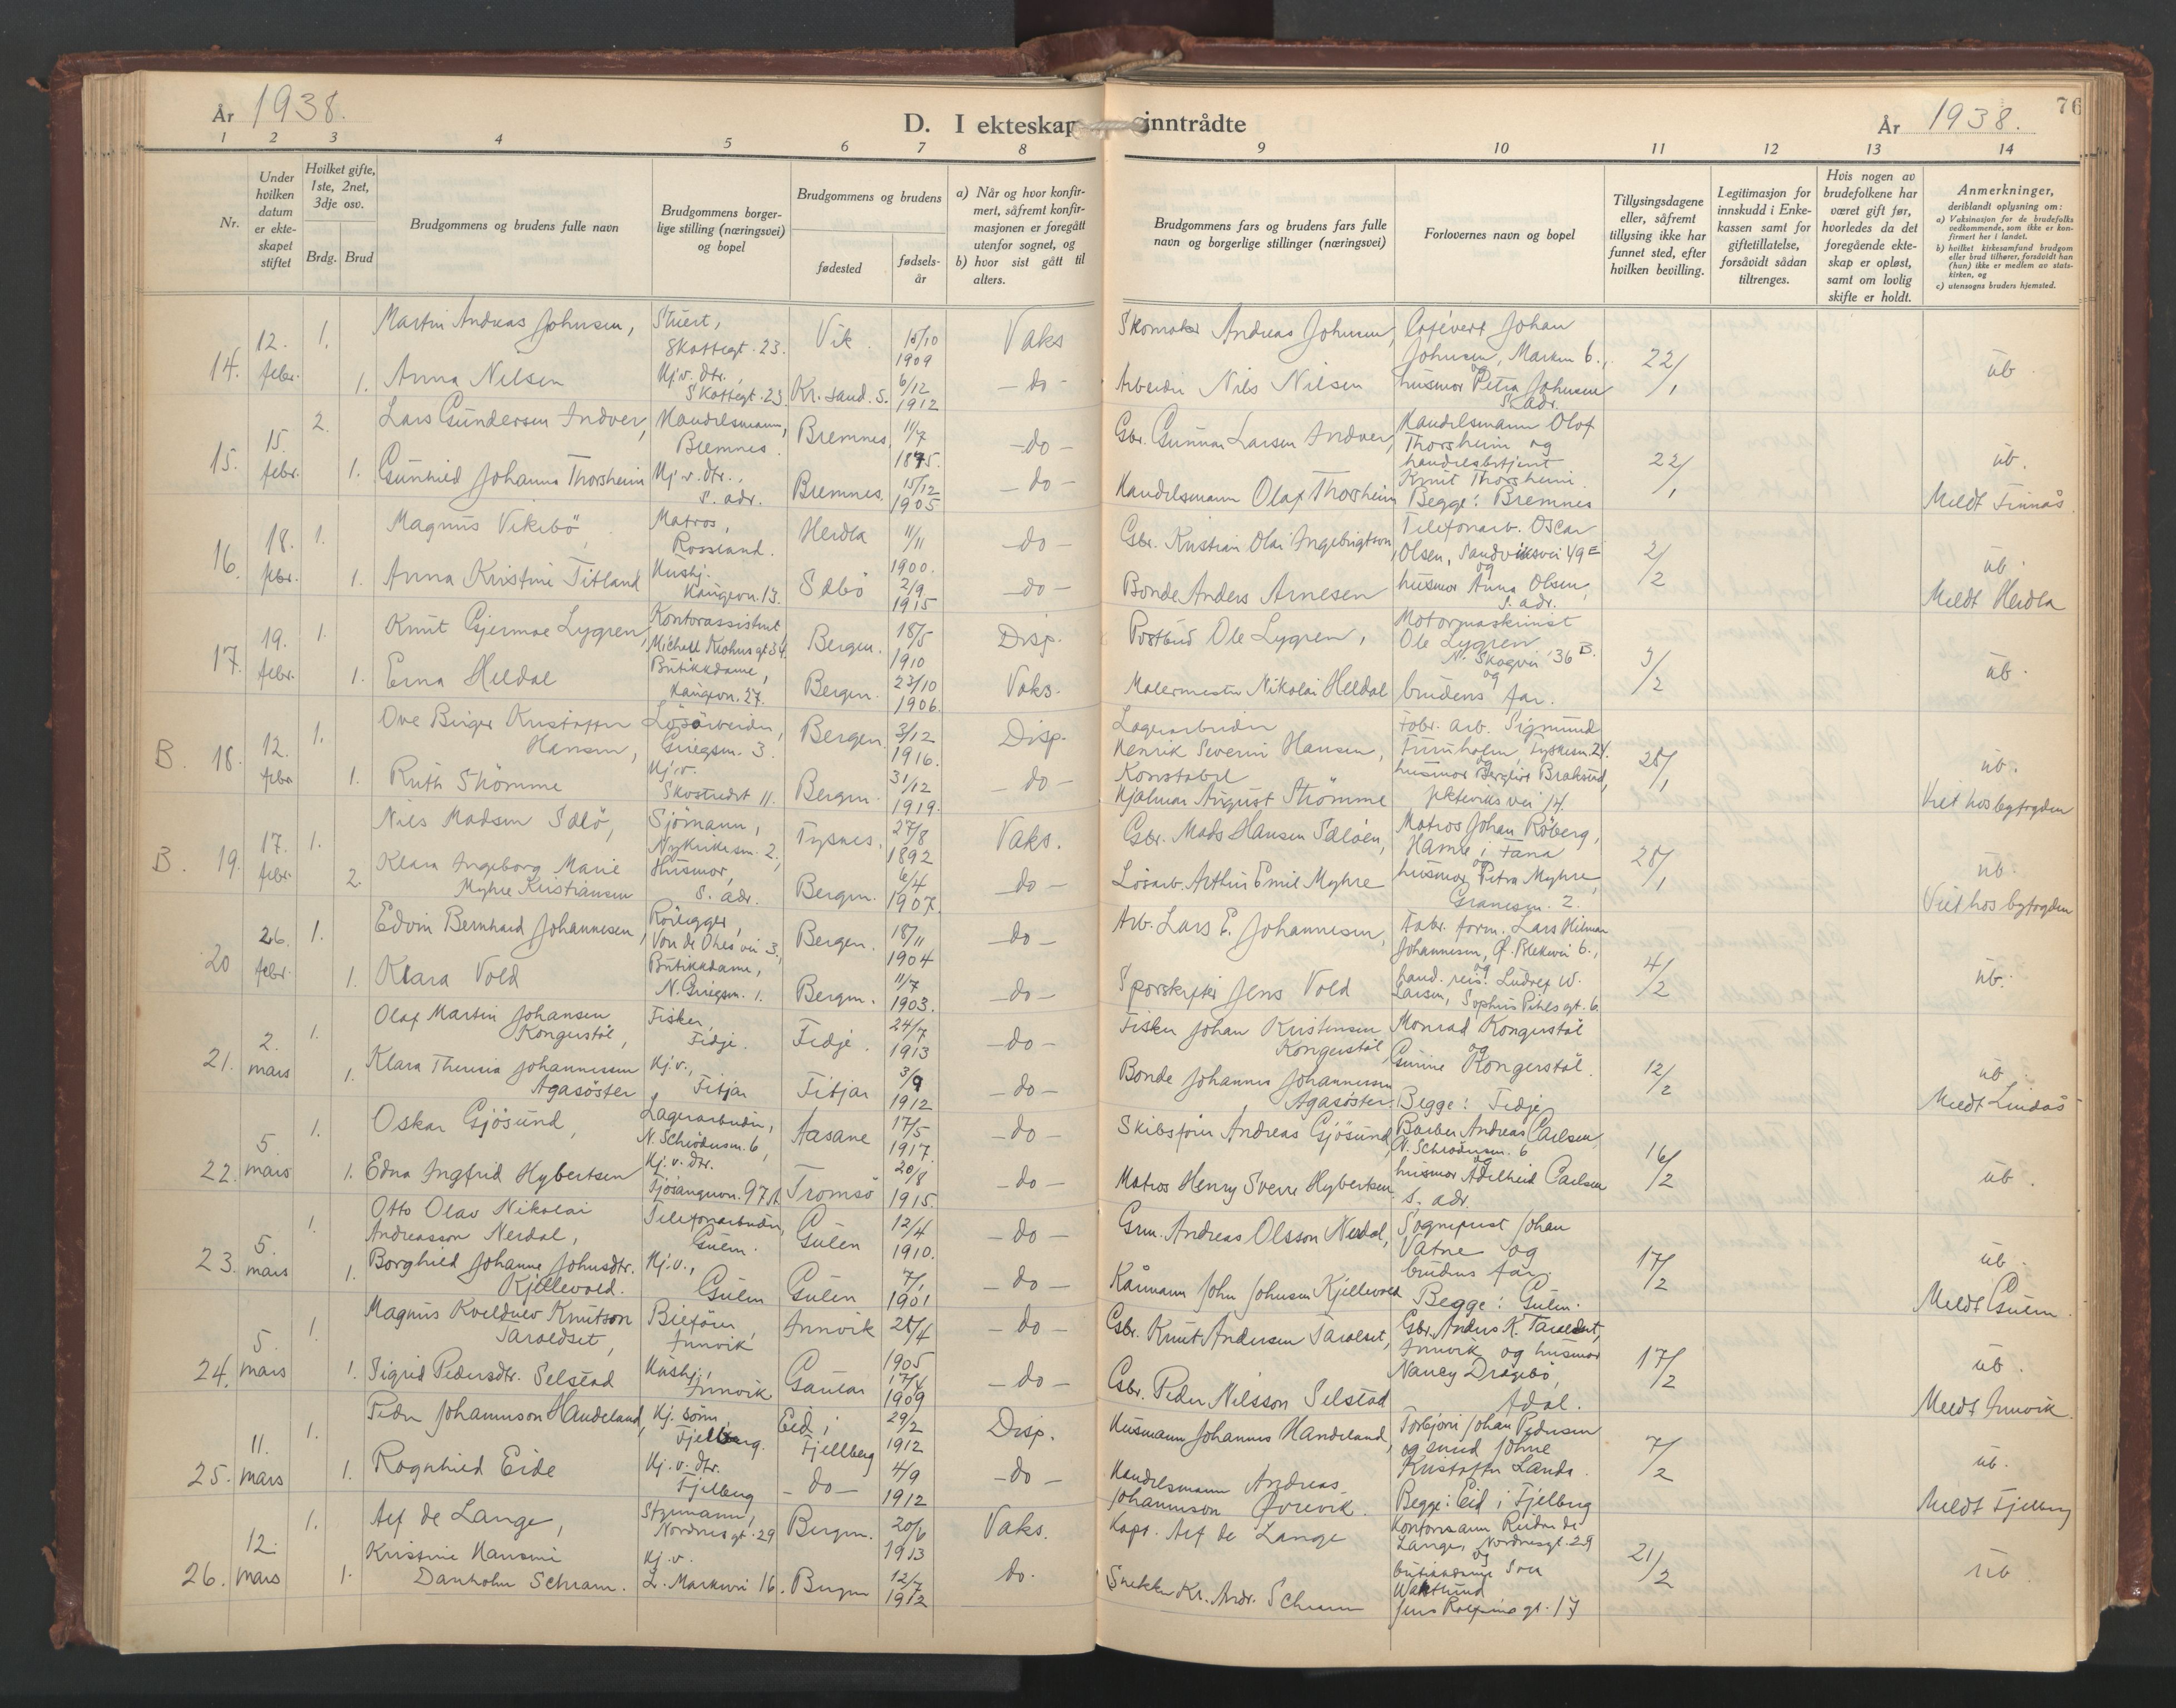 År 1938.
D. I ekteskap inntrådte
År 1938.
76
1 2 3 4 5 6 7 8 9 10 11 12 13 14
Nr.
Under hvilken datum er ekte- skapet stiftet
Hvilket gifte, 1ste, 2net, 3dje osv.
Brdg. Brud
Brudgommens og brudens fulle navn
Brudgommens borger- lige stilling (næringsvei) og bopel
Brudgommens og brudens
fødested
fødsels- år
a) Når og hvor konfir- mert, såfremt konfir- masjonen er foregått utenfor sognet, og
b) hvor sist gått til alters.
Brudgommens fars og brudens fars fulle navn og borgerlige stillinger (næringsvei)
Forlovernes navn og bopel
Tillysingsdagene eller, såfremt tillysing ikke har funnet sted, efter hvilken bevilling.
Legitimasjon for innskudd i Enke- kassen samt for giftetillatelse, forsåvidt sådan tiltrenges.
Hvis nogen av brudefolkene har været gift før, hvorledes da det foregående ekte- skap er opløst, samt om lovlig skifte er holdt.
Anmerkninger, deriblandt oplysning om:
a) Vaksinasjon for de brudefolks vedkommende, som ikke er kon- firmert her i landet.
b) hvilket kirkesamfund brudgom eller brud tilhører, forsåvidt han (hun) ikke er medlem av stats- kirken, og
c) utensogns bruders hjemsted.
14. 12. febr. 1. Martin Andreas Johnsen, Stuert, Skottegt. 23. Vik 15/10 1909 Vaks Skomaker Andreas Johnsen, Cafévert Johan Johnsen, Marken 6., og 22/1 ub.
1. Anna Nilsen Hj.v. dtr., Skottegt. 23. Kr.sand. S. 6/12 1912 - do - Arbeider Nils Nilsen husmor Petra Johnsen S. adr.
15. 15. febr. 2. Lars Gundersen Indver, Handelsmann, Bremnes. Bremnes. 11/7 1875. - do - Gbr. Gunnar Larsen Indver, Handelsmann Olof Thorsheim og 22/1 ub.
1. Gunhild Johanna Thorsheim Hj.v. dtr., S. adr. Bremnes. 15/12 1905 - do - Handelsmann Olaf Thorsheim handelsbetjent Knut Thorsheim. Begge: Bremnes Meldt Finnås.
16. 18. febr. 1. Magnus Vikebö, Matros, Rossland. Herdla 11/11 1900. - do - Gbr. Kristian Olai Ingebrigtson, Telefonarb. Oscar Olsen, Sandviksvei 49 E og 2/2 ub.
1. Anna Kristine Titland Hushj. Haugevn. 13. Sæbö 2/9 1915 - do - Bonde Anders Arnesen husmor Anna Olsen, S. adr. Meldt Herdla
17. 19. febr. 1. Knut Gjermoe Lygren, Kontorassistent, Michael Krohnsgt 34. Bergen. 18/5 1910 Disp. Postbud Ole Lygren, Motormaskinist Ole Lygren N. Skogvei 36 B. og 3/2 ub.
1. Erna Heldal Butikkdame, Haugevn. 27. Bergen. 23/10 1906. Vaks. Malermester Nikolai Heldal brudens far.
B. 18. 12. febr. 1. Ove Birger Kristoffer Hansen, Lösarbeider, Griegsm. 3. Bergen. 3/12 1916. Disp. Lagerarbeider Henrik Severin Hansen, Fabr. arb. Sigmund Furuholm, Tyskesm. 24. og 28/1 ub.
1. Ruth Strömme Hj.v. Skostredet 11. Bergen. 31/12 1919. - do - Konstabel Hjalmar August Strömme husmor Bergliot Brakstad, vei 14. Viet hos byfogden
B. 19. 17. febr. 1. Nils Madsen Sælö, Sjömann, Nykirkesm. 2., Tysnes. 27/8 1892 Vaks. Gbr. Mads Hansen Sælöen, Matros Johan Röberg, Hamre i Fana og 28/1 ub.
2. Klara Ingeborg Marie Myhre Kristiansen Husmor, S. adr. Bergen. 6/4 1907. - do - Lösarb. Arthur Emil Myhre husmor Petra Myhre, Granesm. 2. Viet hos byfogden
20 26. febr. 1. Edvin Bernhard Johannesen, Rörlegger, Von de Ohes vei 3., Bergen. 18/11 1904 - do - Arb. Lars E. Johannesen, Fabr. form. Lars Hilmar Johannesen, Ø. Blekevei 6., og 4/2 ub.
1. Klara Vold Butikkdame, N. Griegsm. 1. Bergen. 11/7 1903. - do - Sporskifter Jens Vold hand. reis. Ludvig W. Larsen, Sophus Pihlsgt. 6.
21. 2. mars 1. Olaf Martin Johansen Kongerstöl, Fisker, Fedje. Fedje. 24/7 1913 - do - Fisker Johan Kristensen Kongerstöl, Monrad Kongerstöl og 12/2 ub.
1. Klara Theresia Johannessen Agasöster Hj.v., Fitjar Fitjar 3/9 1912 - do - Bonde Johannes Johannessen Agasöster. Gurine Kongerstöl. Begge: Fedje Meldt Lindås
22. 5. mars 1. Oskar Gjösund, Lagerarbeider, N. Schrödersm. 6, Aasane 17/5 1917. - do - Skibsförer Andreas Gjösund, Barber Andreas Carlsen, N. Schrödersm. 6 og 16/2 ub.
1. Edna Ingfrid Hybertsen Hj.v. dtr. Fjösangervn. 97 A. Tromsö 20/8 1915. - do - Matros Henry Sverre Hybertsen husmor Adelheid Carlsen s. adr.
23. 5. mars 1. Otto Olav Nikolai Andreasson Nerdal, Telefonarbeider, Gulen. Gulen 12/4 1910. - do - Grm. Andreas Olsson Nerdal, Sogneprest Johan Vatne og 17/2 ub.
1. Borghild Johanne Johnsdtr. Kjellevold. Hj.v., Gulen Gulen 7/1 1901 - do - Kårmann John Johnsen Kjellevold brudens far. Begge: Gulen. Meldt Gulen.
24. 5. mars 1. Magnus Kveldulv Knutson Taraldset, Bilförer, Innvik Innvik 28/4 1905 - do - Gbr. Knut Andersen Taralset, Gbr. Anders K. Taraldset, Innvik og husmor 17/2 ub.
1. Sigrid Pedersdtr. Selstad Hushj., Innvik Gaular 17/4 1909 - do - Gbr. Peder Nilsson Selstad Nancy Dragebö, Adal. Meldt Innvik.
25. 11. mars 1. Peder Johannson Handeland, Hj. sönn, Fjellberg. Eid i Fjellberg 29/2 1912 Disp. Husmann Johannes Handeland, Johan Pedersen og smed Johne 7/2 ub.
1. Ragnhild Eide Hj.v. dtr. Fjelberg - do - 4/9 1912 - do - Handelsmann Andreas Johannson Øvrevik. Kristoffer Landa. Begge: Eid i Fjelberg Meldt Fjelberg
26. 12. mars 1. Alf de Lange, Styrmann, Nordnesgt. 29 Bergen. 20/6 1913 Vaks. Kapt. Alf de Lange Kontorsann Reidar de Lange, Nordnesgt. 29 og 21/2 ub
1. Kristine Hansine Danholm Schram. Hj.v. L. Markevei 16. Bergen 12/7 1912 do. Snekker Kr. Andr. Schram gt. 17